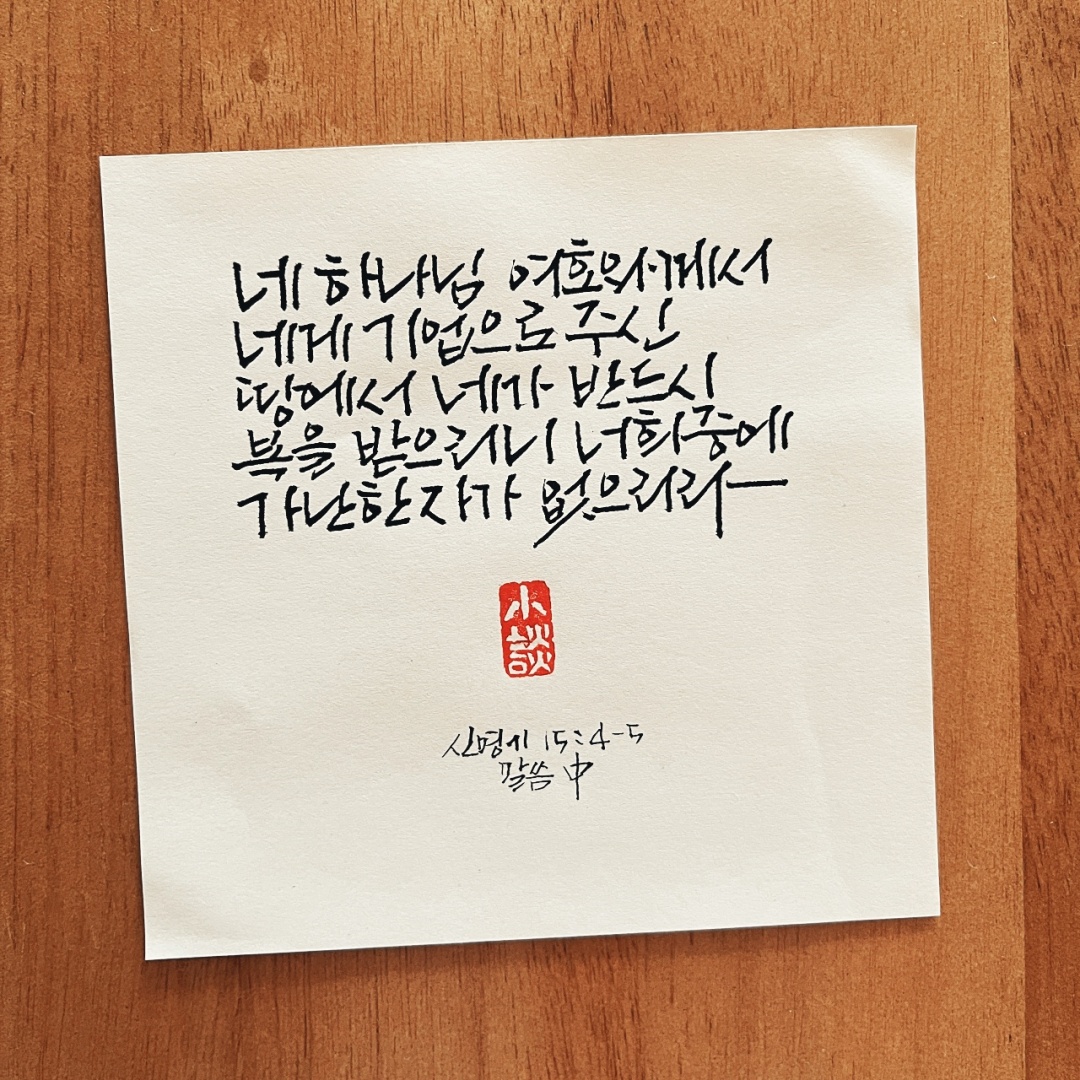 네 하나님 여호와께서
네게 기업으로 주신
땅에서 네가 반드시
복을 받으리니 너희중에
가난한자가 없으리라
小
談
신명기 15:4-5
말씀 中